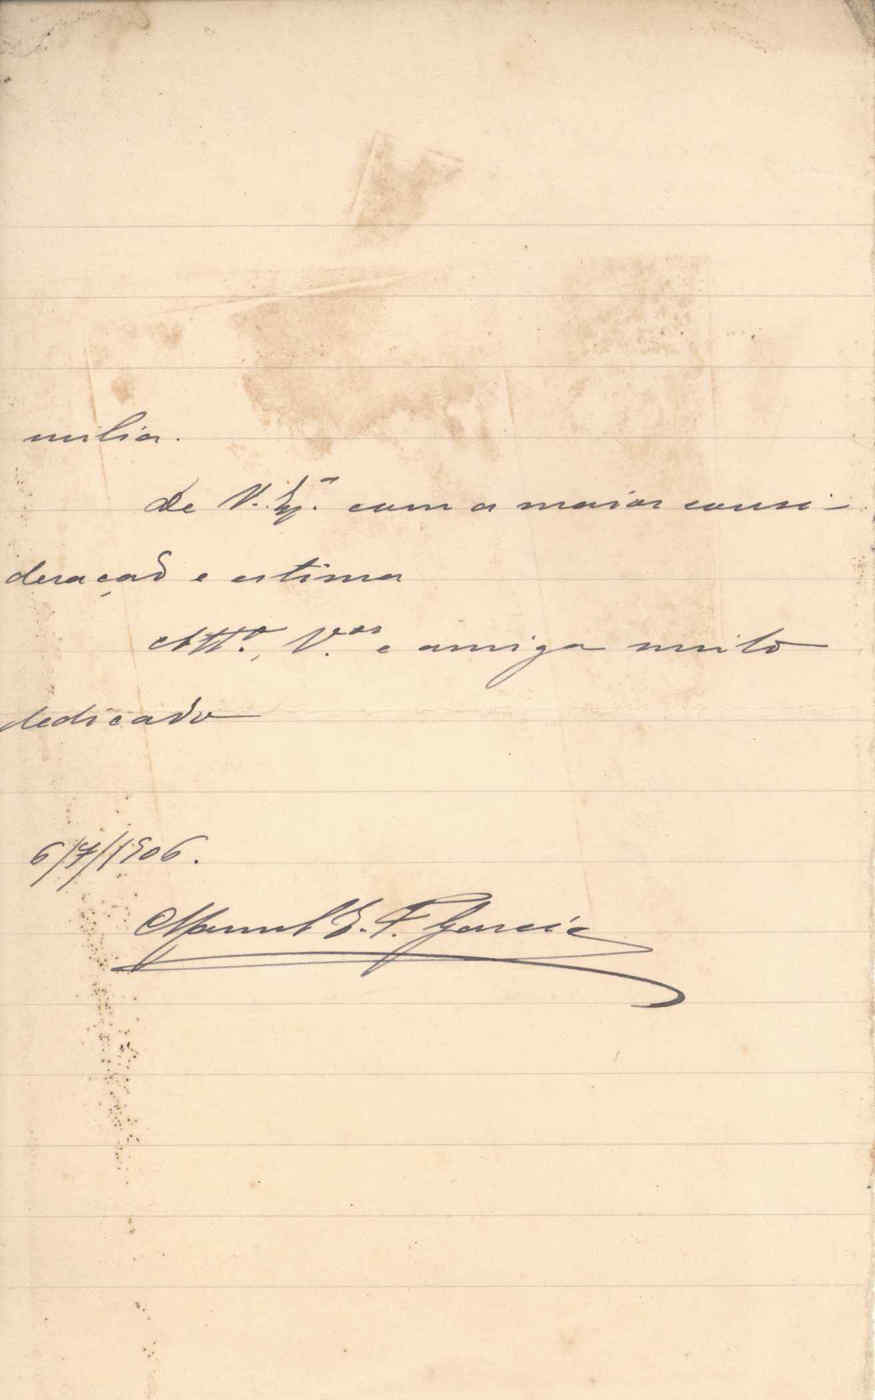 milia.
De V. Ex.ª com a maior consi-
deração e estima
Att.º, V.or e amigo muito
dedicado
6/7/1906.
Manuel E. F. Garcia